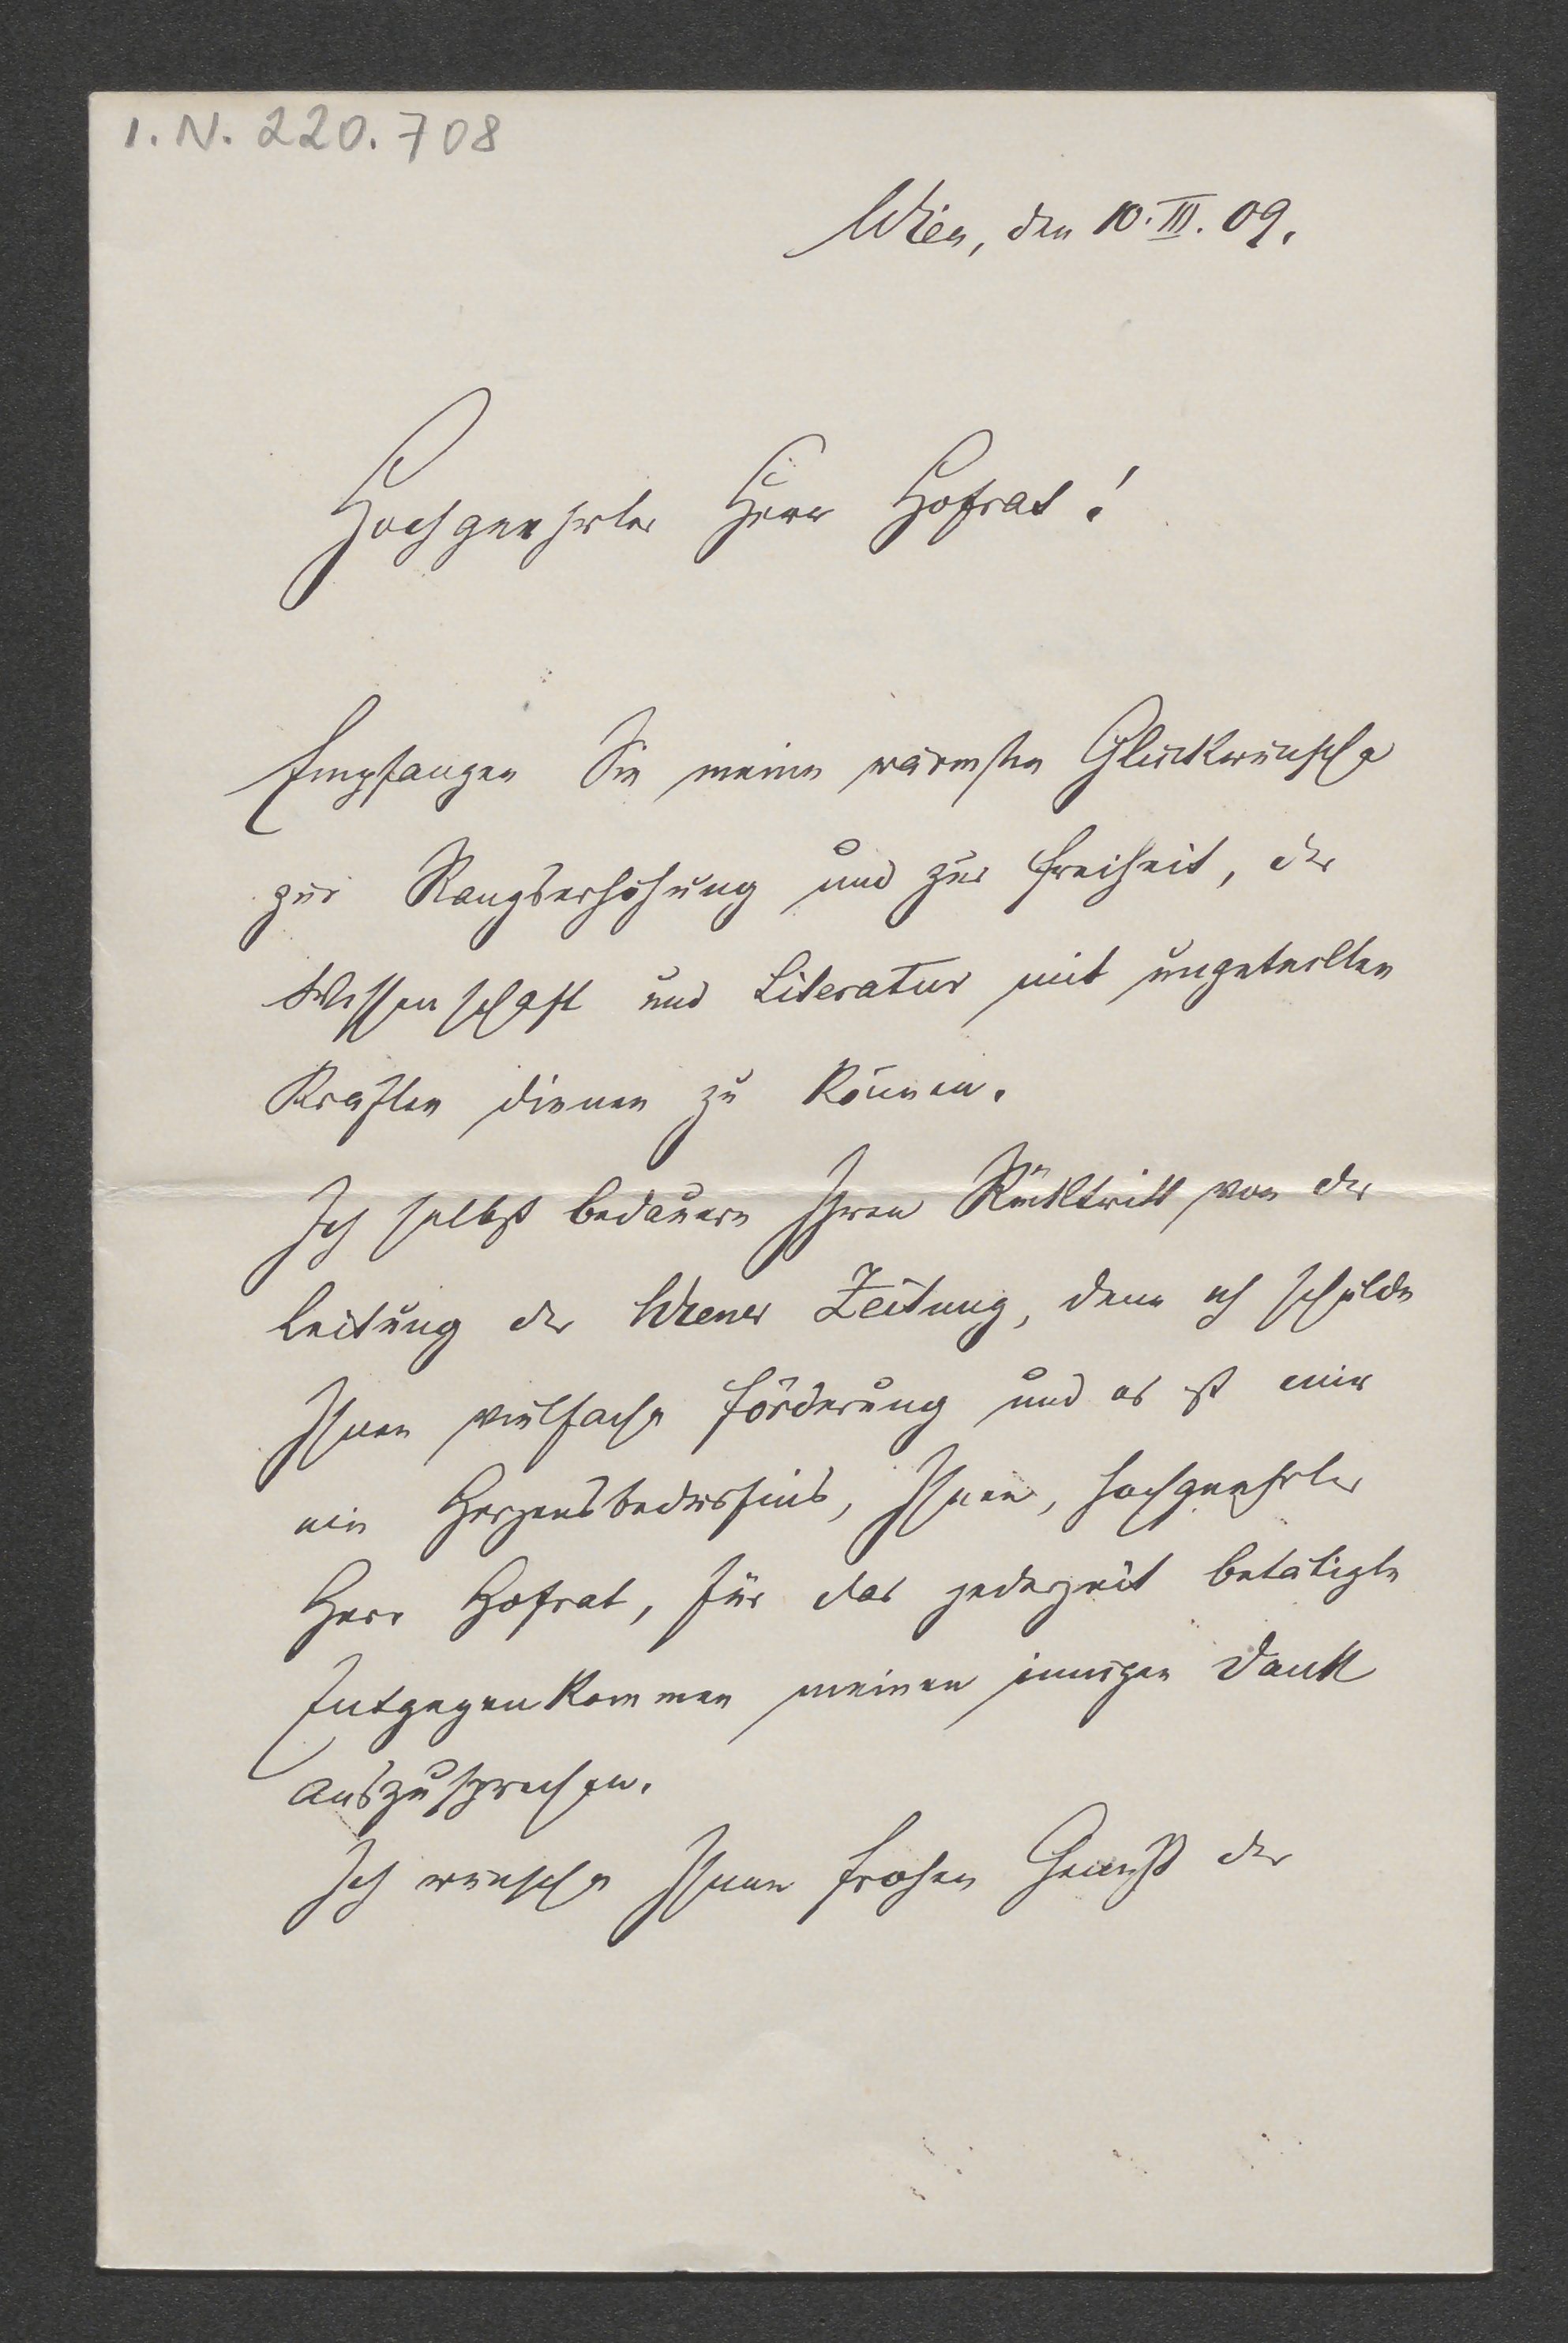 I. N. 220.708
Wien, den 10. III. 09.
Hochgeehrter Herr Hofrat!
Empfangen Sie meine wärmsten Glückwünsche
zur Rangserhöhung und zur Freiheit, der
Wissenschaft und Literatur mit ungeteilten
Kräften dienen zu können.
Ich selbst bedauere Ihren Rücktritt von der
Leitung der Wiener Zeitung, denn ich schulde
Ihnen vielfache Förderung und es ist mir
ein Herzensbedürfnis, Ihnen, hochgeehrter
Herr Hofrat, für das jederzeit betätigte
Entgegenkommen meinen innigen Dank
auszusprechen.
Ich wünsche Ihnen frohen Genuß der